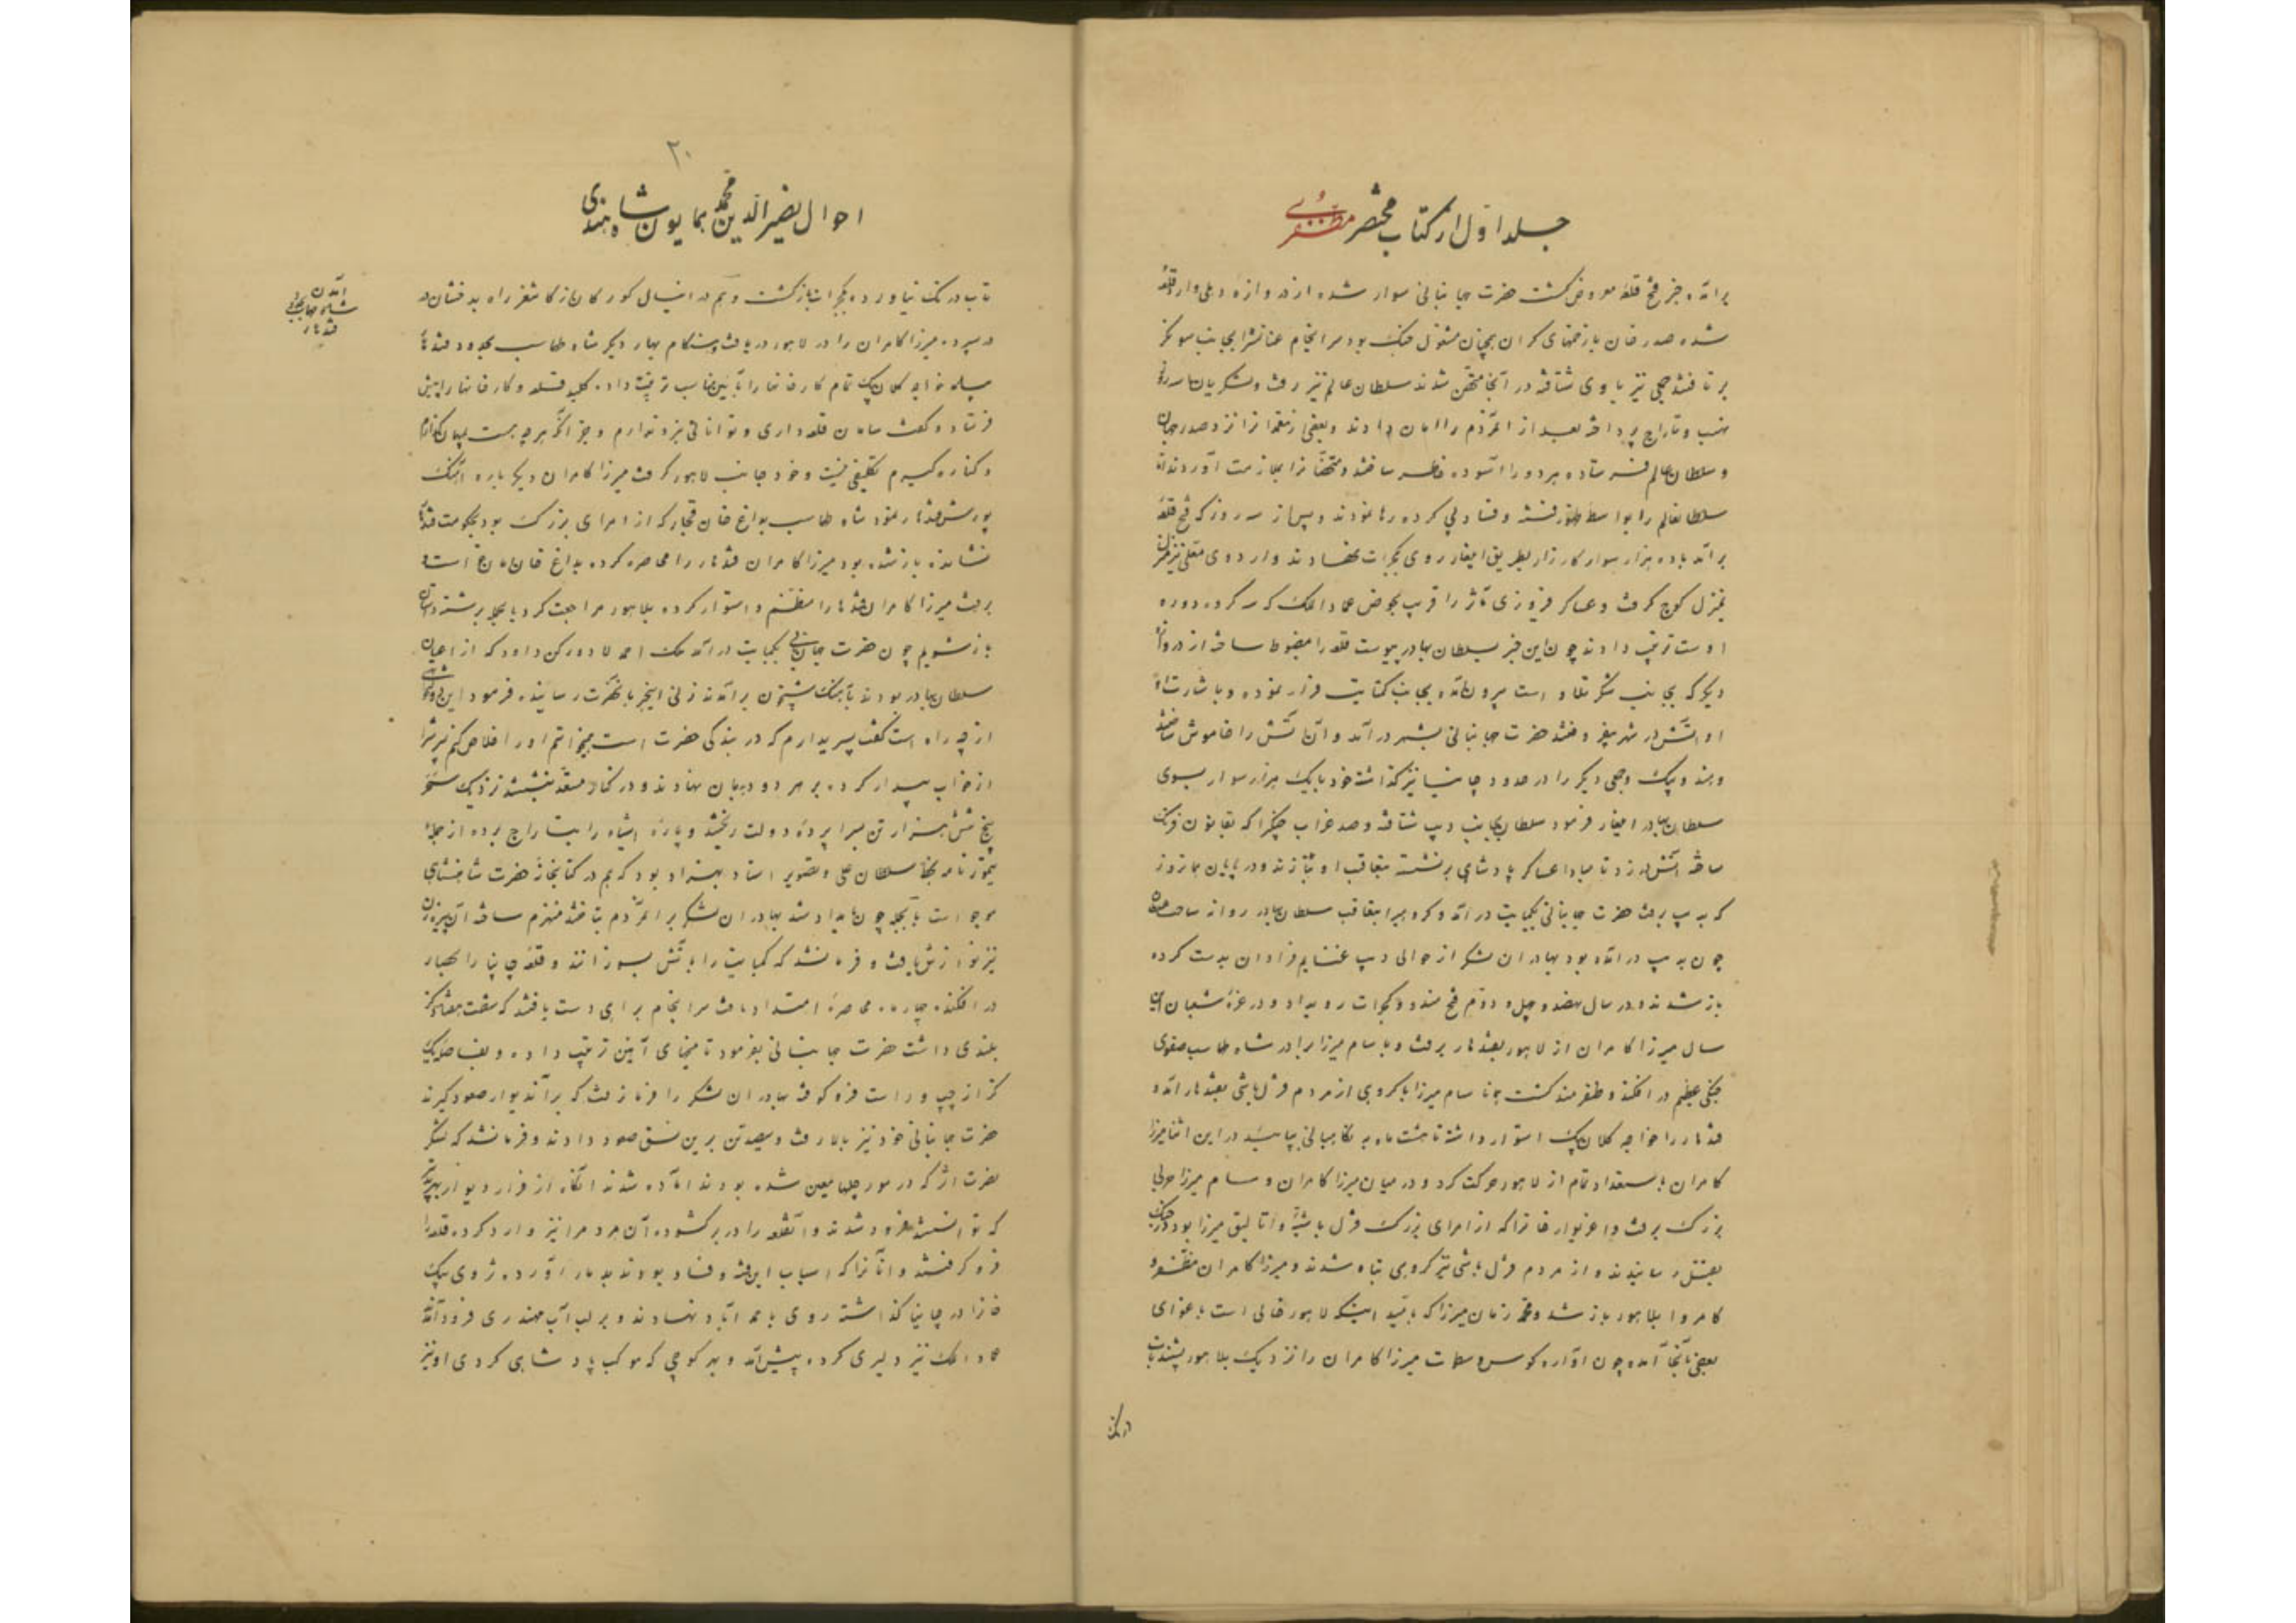 جلد اول از کتاب مختصر مظفری
برآمد و خبر فتح قلعه معروض گشت حضرت جهانبانی سوار شده از دروازه دهلی وارد قلعه
شده صدر خان با زخمهای گران همچنان مشغول جنگ بود سرانجام عنانش را بجانب سونکر
برتافتند جمعی نیز با وی شتافته در آنجا متحصن شدند سلطان عالم نیز رفت و لشکریان تا سه روز
نهب و تاراج پرداخته بعد از آن مردم را امان دادند و بعضی نزد صدر خان
و سلطان عالم فرستاده هر دو را آسوده خاطر ساختند و متحصنانرا بملازمت آوردند اما
سلطان عالم را بواسطه فتنه و فساد پی کرده رها نمودند و پس از سه روز که فتح قلعه
برآمد با ده هزار سوار کارزار بطریق ایلغار روی بگجرات نهادند و اردوی معلی نیز منزل
بمنزل کوچ گرفت و عساکر فیروزی مآثر را قریب بحوض عمادالملک که سه کروه دوره
اوست ترتیب دادند چون این خبر بسلطان بهادر پیوست قلعه را مضبوط ساخته از دروازه
دیگر که بجانب شکر تلاو است بیرون آمده بجانب کنبایت فرار نموده و باشارت
او آتش در شهر بیفروختند حضرت جهانبانی بشهر درآمد و آن آتش را خاموش ساختند
و هندو بیک و جمعی دیگر را در حدود چانپانیر گذاشت خود با یک هزار سوار بسوی
سلطان بهادر ایلغار فرمود سلطان بجانب دیپ شتافته و صد غراب جنگی را که بقانون فرنگ
ساخته آتش در زد تا مبادا عساکر پادشاهی برنشسته بتعاقب او بتازند و در پایان همانروز
که به دیپ برفت حضرت جهانبانی بکنبایت درآمد و گروهی را بتعاقب سلطان بهادر روانه ساخت
چون به دیپ درآمده بود بهادران لشکر از حوالی دیپ غنایم فراوان بدست کرده
باز شدند و در سال نهصد و چهل و دوم فتح مندو و گجرات رو بداد و در غره شعبان این
سال میرزا کامران از لاهور بقندهار برفت و با سام میرزا برادر شاه طهماسب صفوی
جنگی عظیم در افکند و ظفرمند گشت همانا سام میرزا با گروهی از مردم قزلباش بقندهار آمده
قندهار را خواجه کلان بیک استوار داشته تا هشت ماه به نگاهبانی بپایید در این اثنا میرزا
کامران باستعداد تمام از لاهور حرکت کرد و در میان میرزا کامران و سام میرزا حربی
بزرگ برفت و اغزیوار خانرا که از امرای بزرگ قزلباشیه و اتالیق میرزا بود در جنگ
بقتل رسانیدند و از مردم قزلباش نیز گروهی تباه شدند و میرزا کامران مظفر و
کامروا بلاهور باز شد و محمد زمان میرزا که باميد اینکه لاهور خالی است باغوای
بعضی بآنجا آمده چون آوازه کوس و سطوت میرزا کامران را نزدیک بلاهور بشنید تاب
درنگ
۲۰
احوال نصیر الدین محمد همایون شاه هندی
تاب درنگ نیاورده بگجرات بازگشت و هم در اینسال کورکان از کاشغر راه بدخشان در
در سپرده میرزا کامران را در لاهور دریافت و هنگام بهار دیگر شاه طهماسب بحدود قندهار
بیامد خواجه کلان بیک تمام کارخانها را بآئین مناسب ترتیب داده کلید قلعه و کارخانها را پیش
فرستاد و گفت سامان قلعه داری و توانائی نبرد ندارم و جز آنکه هرچه هست بمیان گذارم
و کناره گیرم تکلیفی نیست و خود جانب لاهور گرفت میرزا کامران دیگر باره آهنگ
یورش قندهار نمود شاه طهماسب بداغ خان قجار که از امرای بزرگ بود بحکومت قندهار
نشانده باز شده بود میرزا کامران قندهار را محاصره کرده بداغ خان امان خواسته
برفت میرزا کامران قندهار را منظم و استوار کرده بلاهور مراجعت کرد بالجمله بر سر داستان
باز شویم چون حضرت جهانبانی بکنبایت درآمد ملک احمد لاد و رکن داود که از اعیان
سلطان بهادر بودند بآهنگ شبیخون برآمدند زنی اینخبر بآنحضرت رسانیده فرمود این دولتخواهی
از چه راه است گفت پسری دارم که در بندگی حضرت است میخواهم او را خلاص کنم پسرش را
از خواب بیدار کرده بر هر دو دیدبان نهادند و در کنار مستعد بنشستند نزدیک سحر
پنج شش هزار تن بسراپرده دولت ریختند و پاره اشیاء را بتاراج برده از جمله
تیمور نامه بخط سلطان علی و تصویر استاد بهزاد بود که هم در کتابخانه حضرت شاهنشاهی
موجود است بالجمله چون بامداد شد بهادران لشکر بر آنمردم بتاختند منهزم ساخته آن پیرزن
نیز نوازش یافت و فرمان شد که کنبایت را بآتش بسوزانند و قلعه چانپانیر را بحصار
در افکنده چهار ماه محاصره امتداد یافت سرانجام براهی دست یافتند که شصت هفتاد گز
بلندی داشت حضرت جهانبانی بفرمود تا میخهای آهنین ترتیب داده و بفاصله یک
گز از چپ و راست فرو کوفته بهادران لشکر را فرمان رفت که بر آندیوار صعود گیرند
حضرت جهانبانی خود نیز بالا رفت و سیصد تن برین نسق صعود دادند و فرمان شد که لشکر
نصرت اثر که در مورچلها معین شده بودند آماده شدند آنگاه از فراز دیوار بهر تدبیر
که توانستند فرود شدند و آنقلعه را در برگشوده آن مردم را نیز وارد کرده قلعه را
فرو گرفتند و آنانرا که اسباب این فتنه و فساد بودند بدمار آورده تردی بیک
خانرا در چانپانیر گذاشته روی باحمدآباد نهادند و بر لب آب مهندری فرود آمدند
عمادالملک نیز دلیری کرده پیش آمد و بهر کوچی که موکب پادشاهی کردی او نیز
آمدن
شاه طهماسب بحدود
قندهار